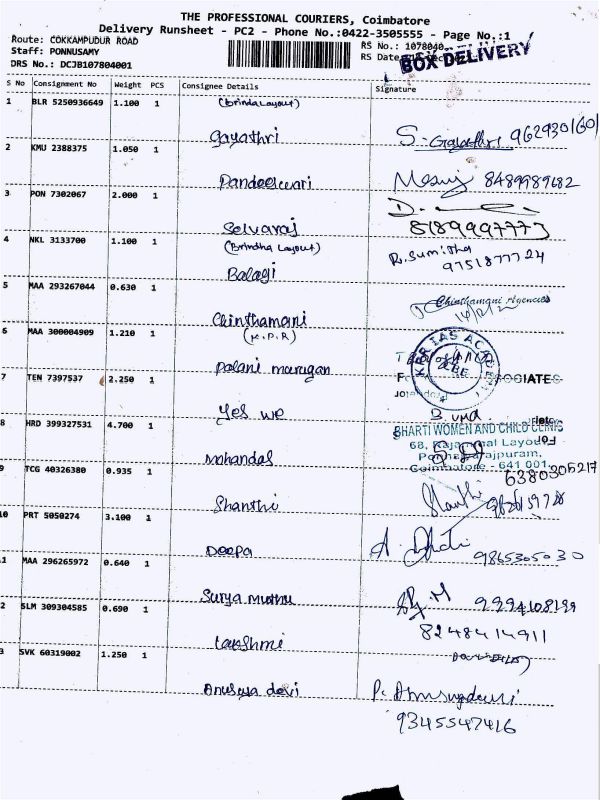 THE PROFESSIONAL COURIERS, Coimbatore
Delivery Runsheet - PC2 - Phone No.:0422-3505555 - Page No.:1
Route: COKKAMPUDUR ROAD
Staff: PONNUSAMY
DRS No.: DCJB107804001
RS No.: 1078040
RS Date
BOX DELIVERY
S No Consignment No Weight PCS Consignee Details Signature
1 BLR 5250936649 1.100 1 (brindaLayout)
Gayathri S. Gayathri 9629301601
2 KMU 2388375 1.050 1
Pandeeswari 8489989682
3 PON 7302067 2.000 1
Selvaraj 8189997773
4 NKL 3133700 1.100 1 (Brindha Layout) R. Sumitha
Balagi 9751877724
5 MAA 293267044 0.630 1
Chinthamani Chinthamani Agencies
6 MAA 300004909 1.210 1 (K.P.R) KPR IAS ACADEMY
palani murugan
7 TEN 7397537 2.250 1 ASSOCIATES
Yes we B. uma
8 HRD 399327531 4.700 1 BHARTI WOMEN AND CHILD CLINIC
68, Layout
Mohandas Coimbatore - 641 001
6380305217
9 TCG 40326380 0.935 1
Shanthi Shanthi
10 PRT 5050274 3.100 1
Deepa 9865305030
11 MAA 296265972 0.640 1
Surya muthu 9994108199
12 SLM 309304585 0.690 1 8248414911
Lakshmi
13 SVK 60319002 1.250 1
Anusuya devi P. Anusuyadevi
9345547416